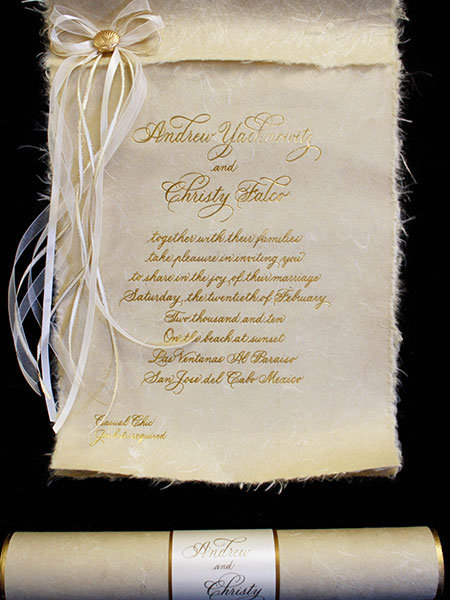 Andrew
and
Christy Falco
together with their families
take pleasure in inviting you
to share in the joy of their marriage
Saturday, the twentieth of February
Two thousand and ten
On the beach at sunset
Las Ventanas Al Paraiso
San Jose del Cabo Mexico
Casual Chic
required
Andrew
and
Christy